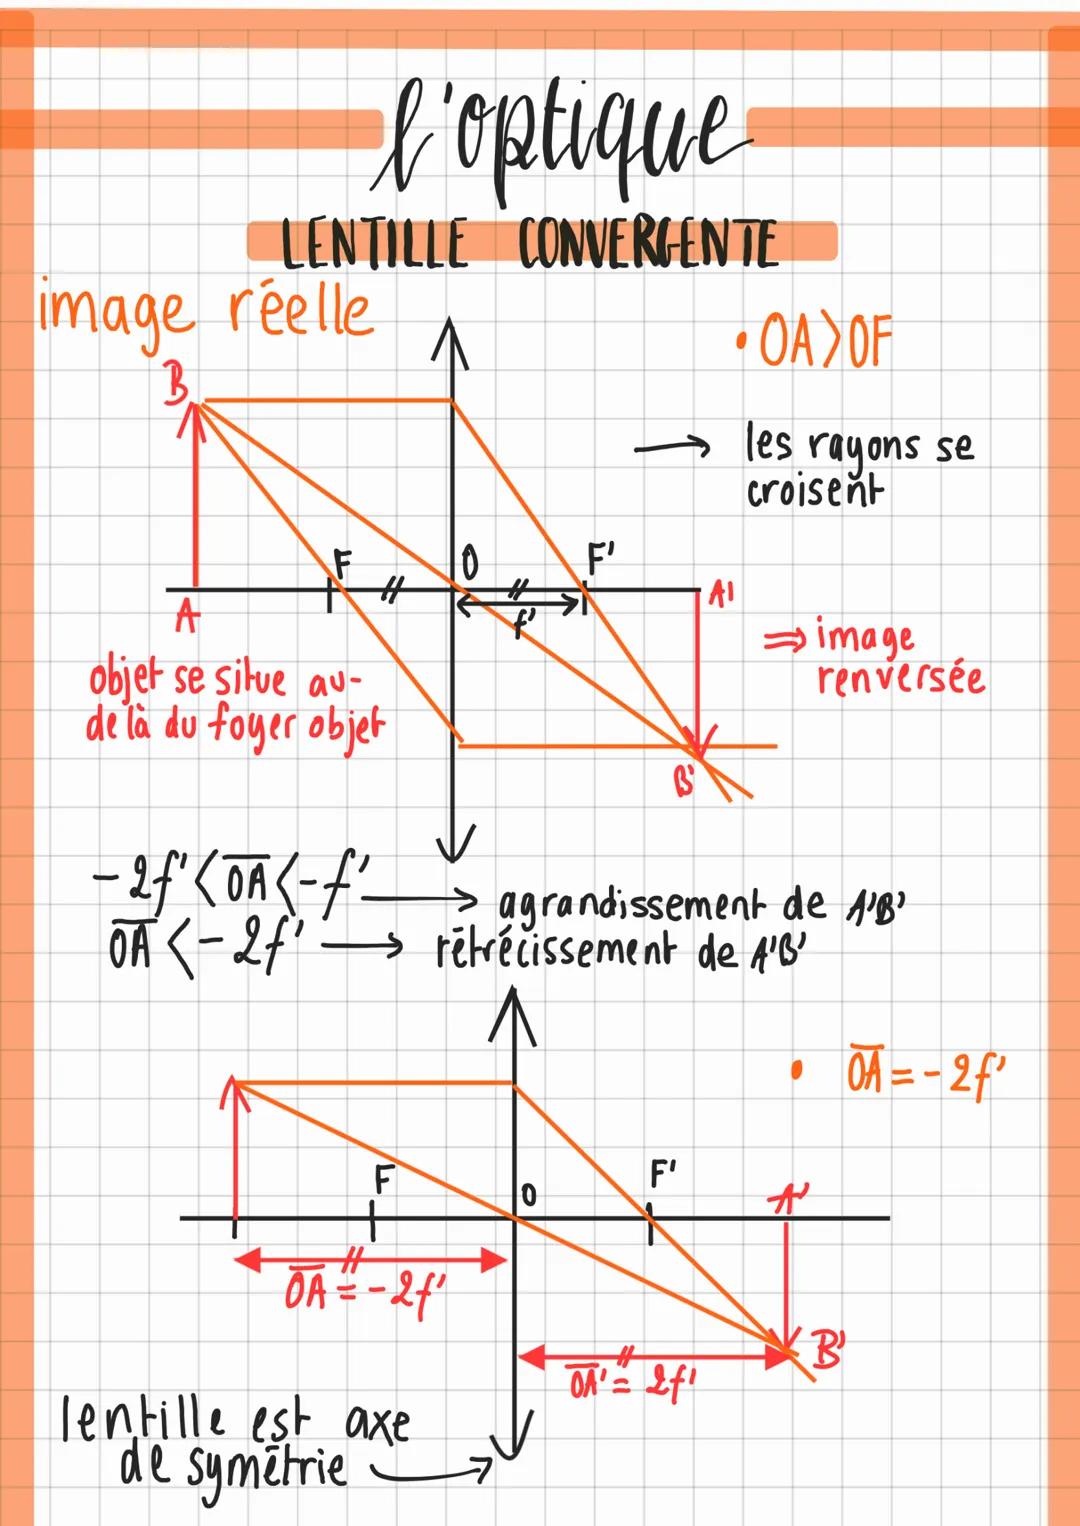 l'optique
LENTILLE CONVERGENTE
image réelle
• OA > OF
B
→ les rayons se
croisent
F
O
F'
A
f'
A'
⇒ image
renversée
objet se situe au-
delà du foyer objet
B'
-2f' < O̅A̅ < -f' → agrandissement de A'B'
O̅A̅ < -2f' → rétrécissement de A'B'
• O̅A̅ = -2f'
F
O
F'
A'
O̅A̅ = -2f'
B'
O̅A̅' = 2f'
lentille est axe
de symétrie →